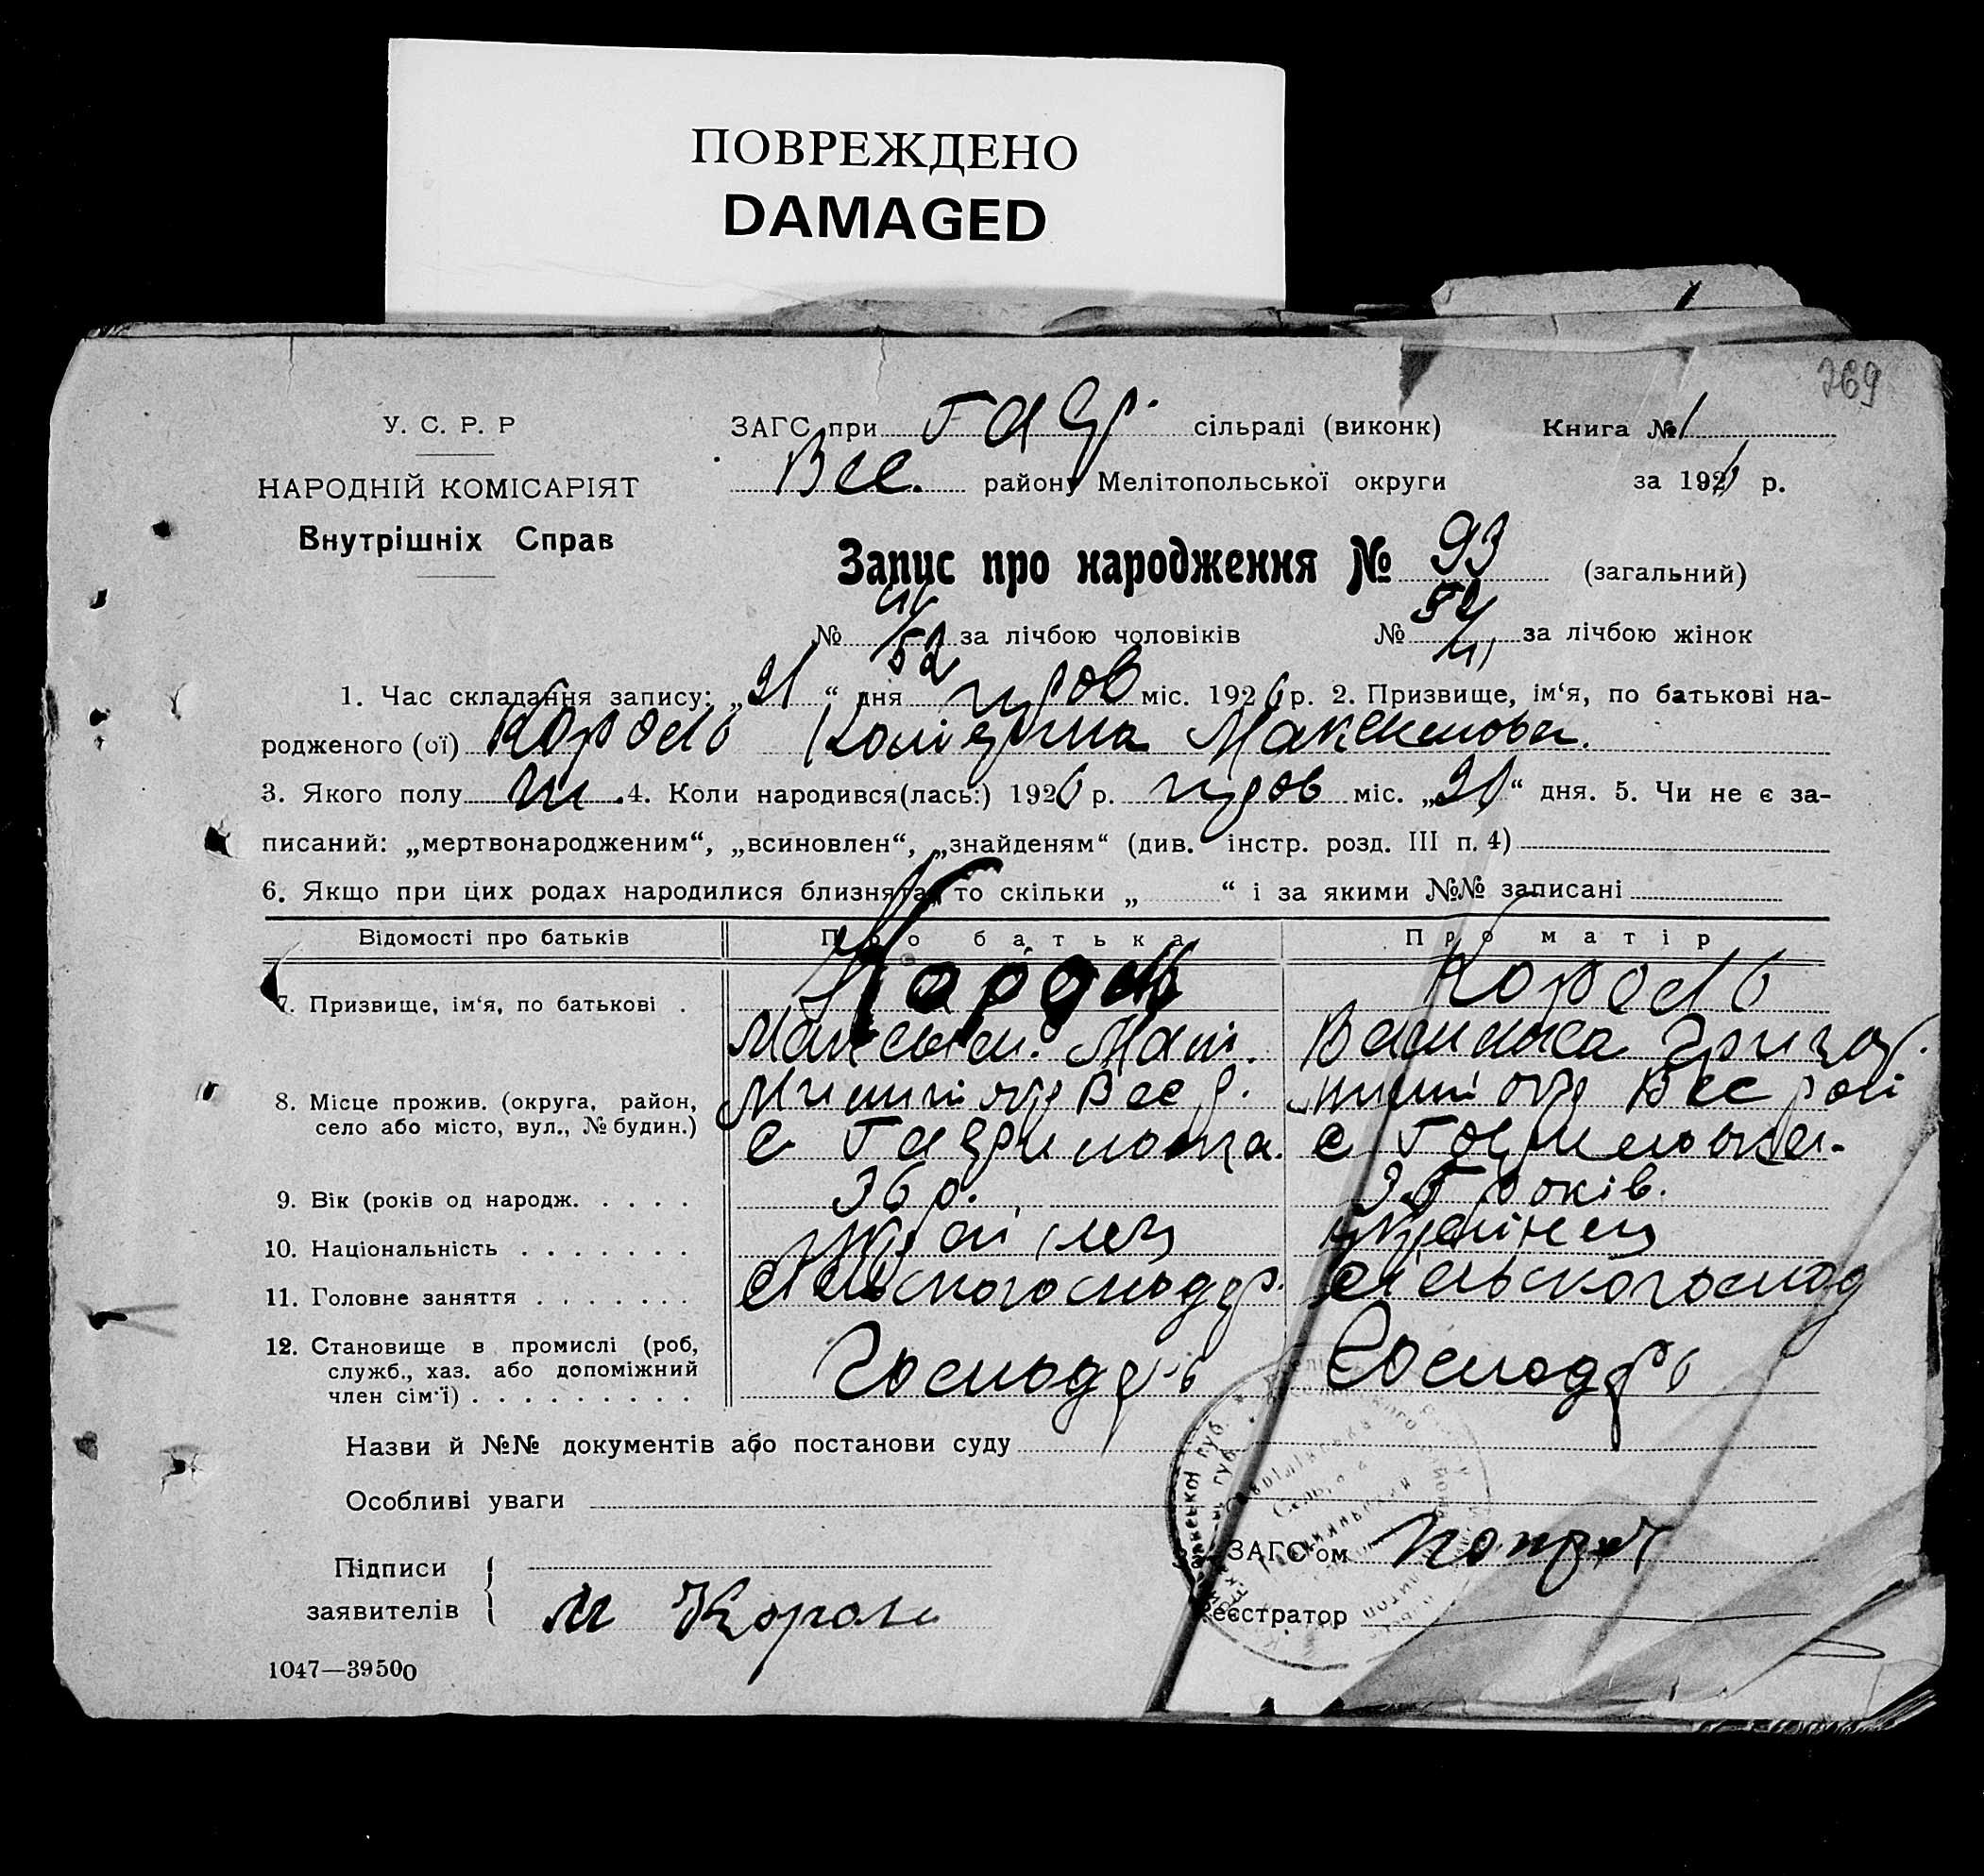 ПОВРЕЖДЕНО
DAMAGED
269
У. С. Р. Р
НАРОДНІЙ КОМІСАРІЯТ
Внутрішніх Справ
ЗАГС при Гавр. сільраді (виконк) Книга № 1
Вес. району Мелітопольської округи за 1926 р.
Запис про народження № 93 (загальний)
№ 41/52 за лічбою чоловіків № 52/41 за лічбою жінок
1. Час складання запису: „21“ дня міс. 1926 р. 2. Призвище, ім‘я, по батькові на-
родженого (ої) Король Максимова.
3. Якого полу ж. 4. Коли народився(лась:) 1926 р. міс. „21“ дня. 5. Чи не є за-
писаний: „мертвонародженим“, „всиновлен“, „знайденям“ (див. інстр. розд. III п. 4)
6. Якщо при цих родах народилися близнята, то скільки „ “ і за якими №№ записані
Відомості про батьків Про батька Про матір
7. Призвище, ім‘я, по батькові . Король Король
Максим. Мат.
8. Місце прожив. (округа, район, Вес р. Вес рай
село або місто, вул., № будин.) с Гавриловка. с Гавриловка.
9. Вік (років од народж. . . . . 36 р. 35 років.
10. Національність . . . . . . . Українец українец
11. Головне заняття . . . . . . . сільськогосподар. сільськогоспод
12. Становище в промислі (роб,
служб., хаз. або допоміжний Господарь Господарь
член сім‘ї) . . . . . . . . .
Назви й №№ документів або постанови суду
Особливі уваги
Підписи ЗАГС‘ом
заявителів М Король Реєстратор
1047—39500